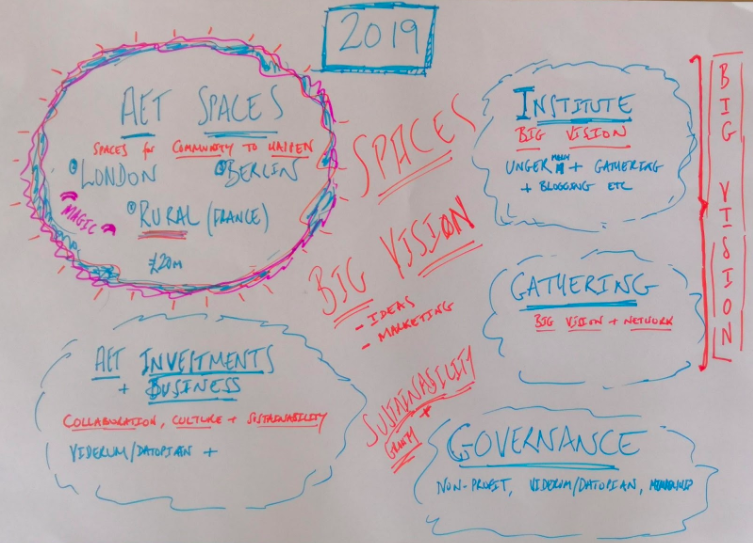 2019
AET SPACES
SPACES for COMMUNITY TO HAPPEN
LONDON
BERLIN
RURAL (FRANCE)
MAGIC
£20M
SPACES
BIG VISION
- IDEAS
- MARKETING
INSTITUTE
BIG VISION
UNGER + GATHERING
+ BLOGGING ETC
GATHERING
BIG VISION + NETWORK
BIG VISION
AET INVESTMENTS
+ BUSINESS
COLLABORATION, CULTURE + SUSTAINABILITY
VIDERUM/DATOPIAN +
SUSTAINABILITY
+
GOVERNANCE
NON-PROFIT, VIDERUM/DATOPIAN,